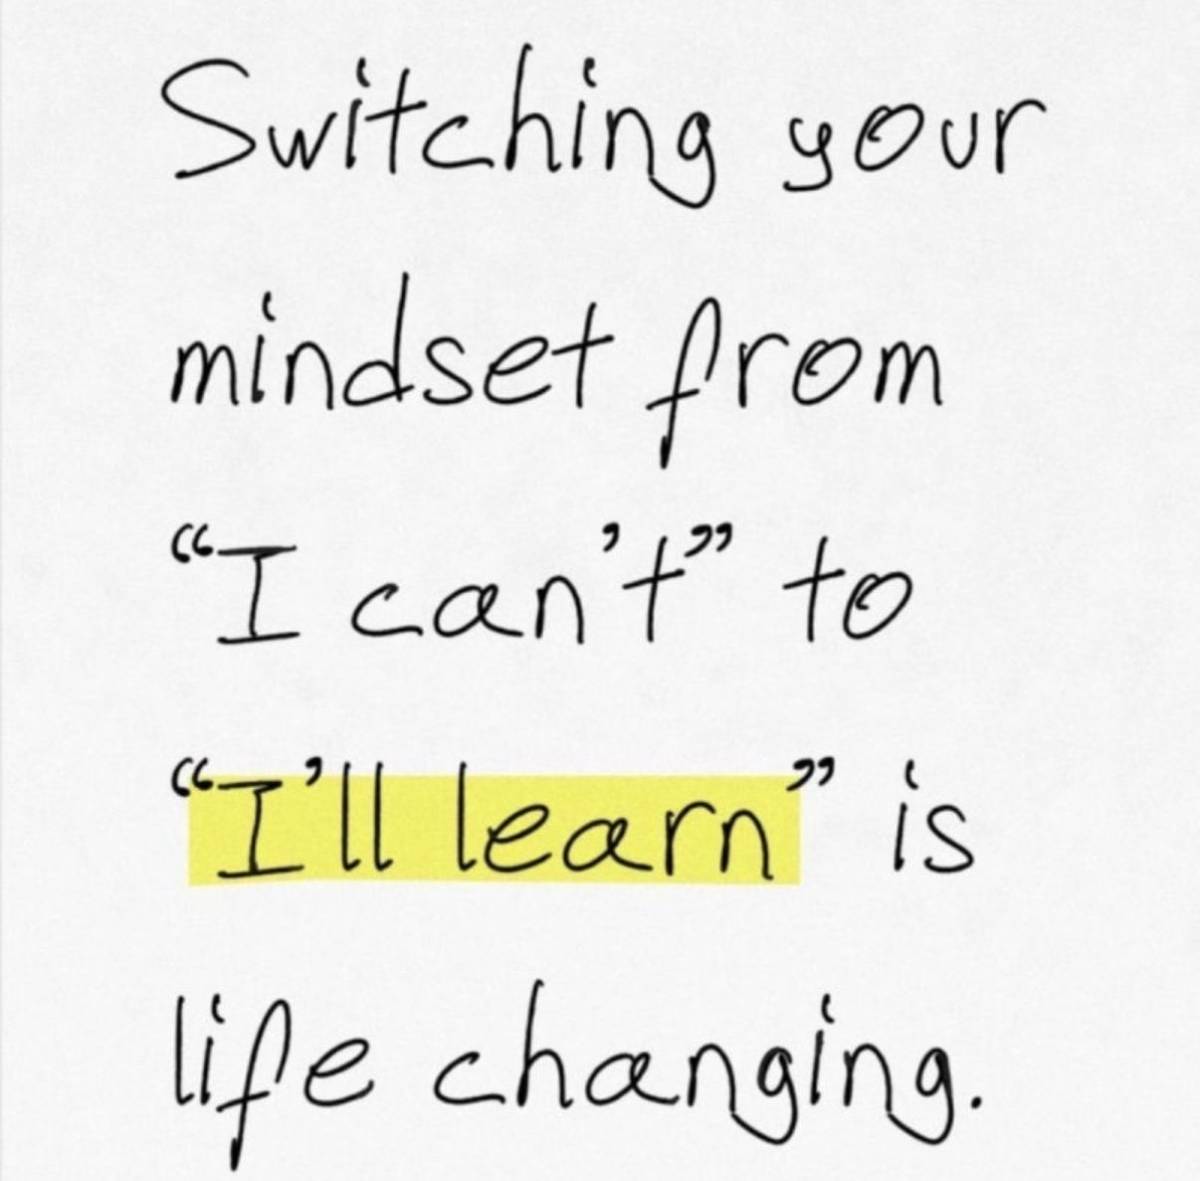 Switching your
mindset from
“I can’t” to
“I’ll learn” is
life changing.